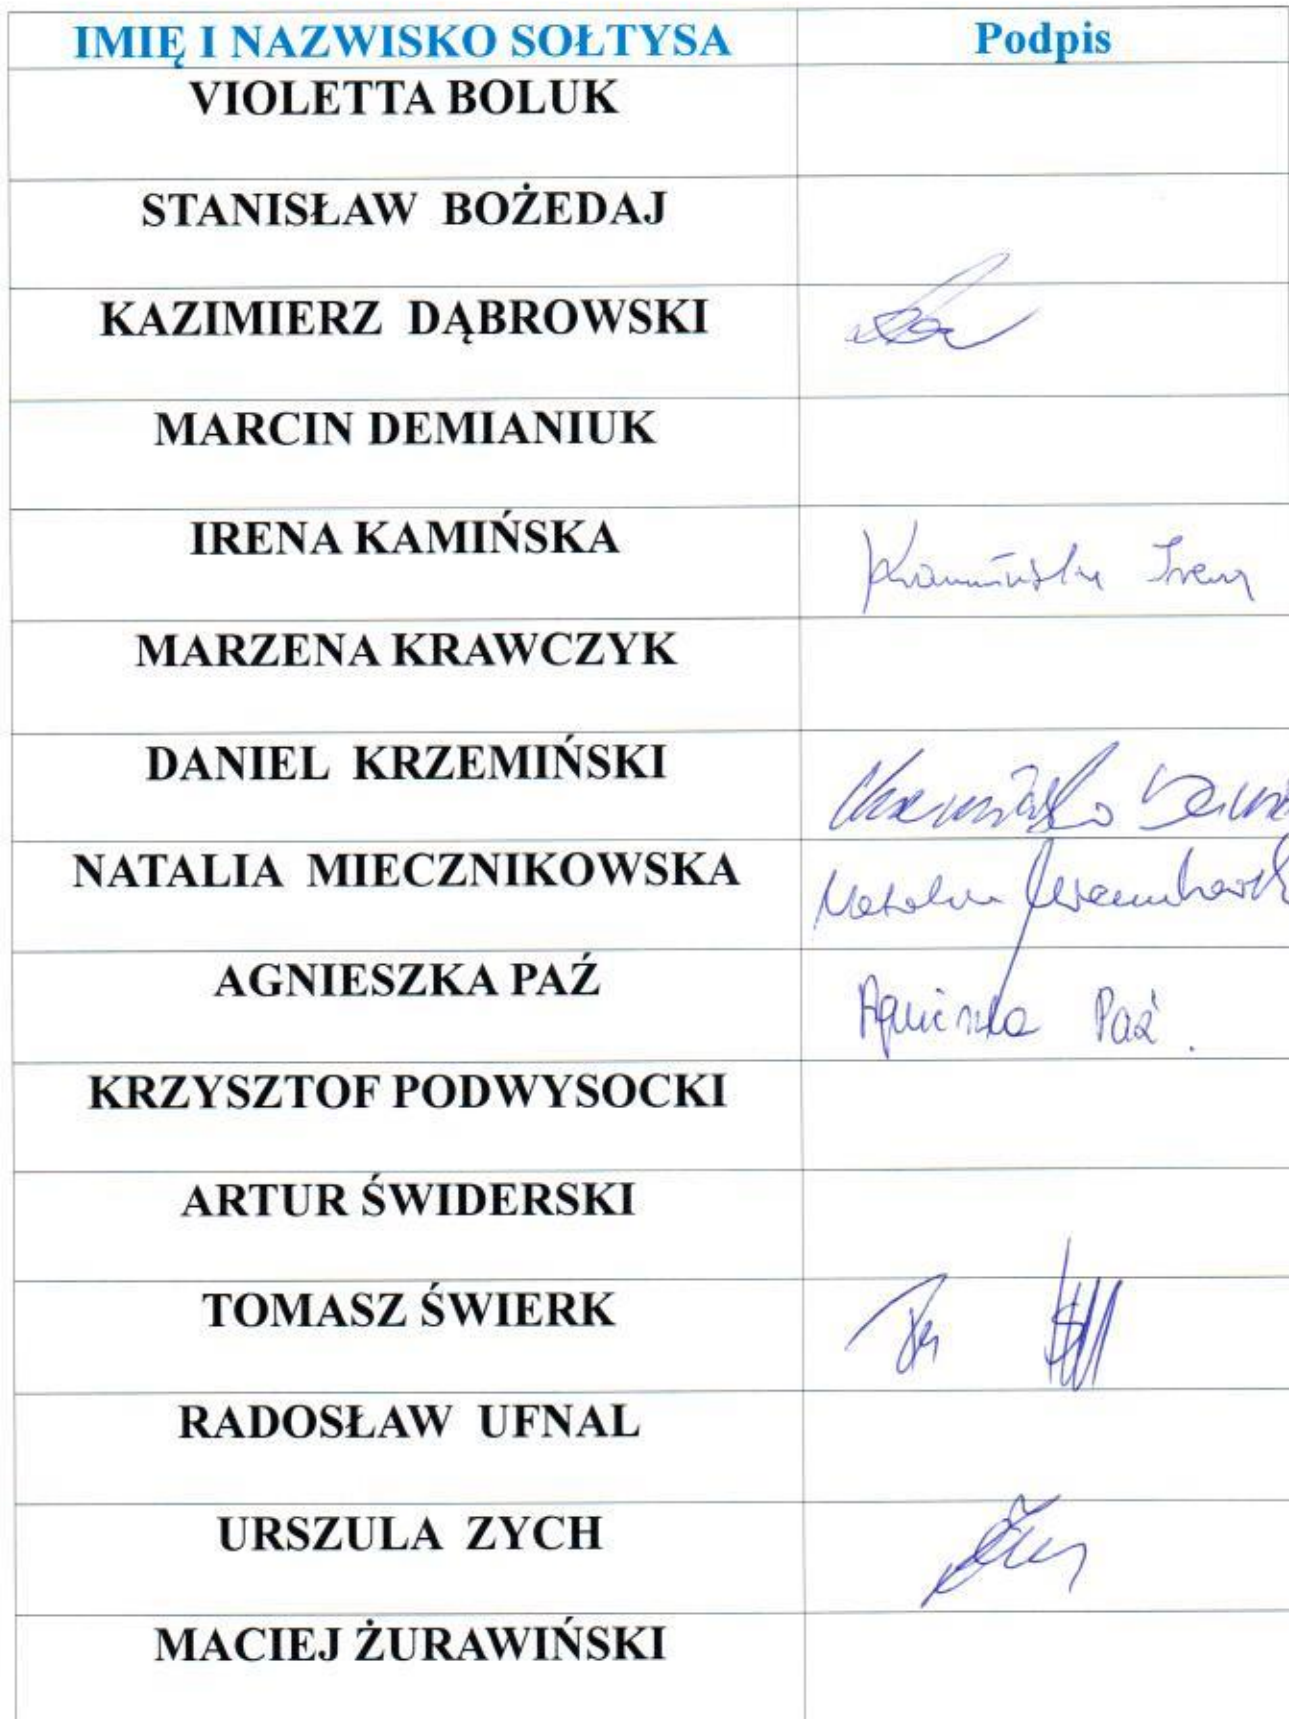 IMIĘ I NAZWISKO SOŁTYSA Podpis
VIOLETTA BOLUK
STANISŁAW BOŻEDAJ
KAZIMIERZ DĄBROWSKI
MARCIN DEMIANIUK
IRENA KAMIŃSKA Kamińska Irena
MARZENA KRAWCZYK
DANIEL KRZEMIŃSKI
NATALIA MIECZNIKOWSKA Natalia
AGNIESZKA PAŹ Agnieszka Paź.
KRZYSZTOF PODWYSOCKI
ARTUR ŚWIDERSKI
TOMASZ ŚWIERK
RADOSŁAW UFNAL
URSZULA ZYCH
MACIEJ ŻURAWIŃSKI